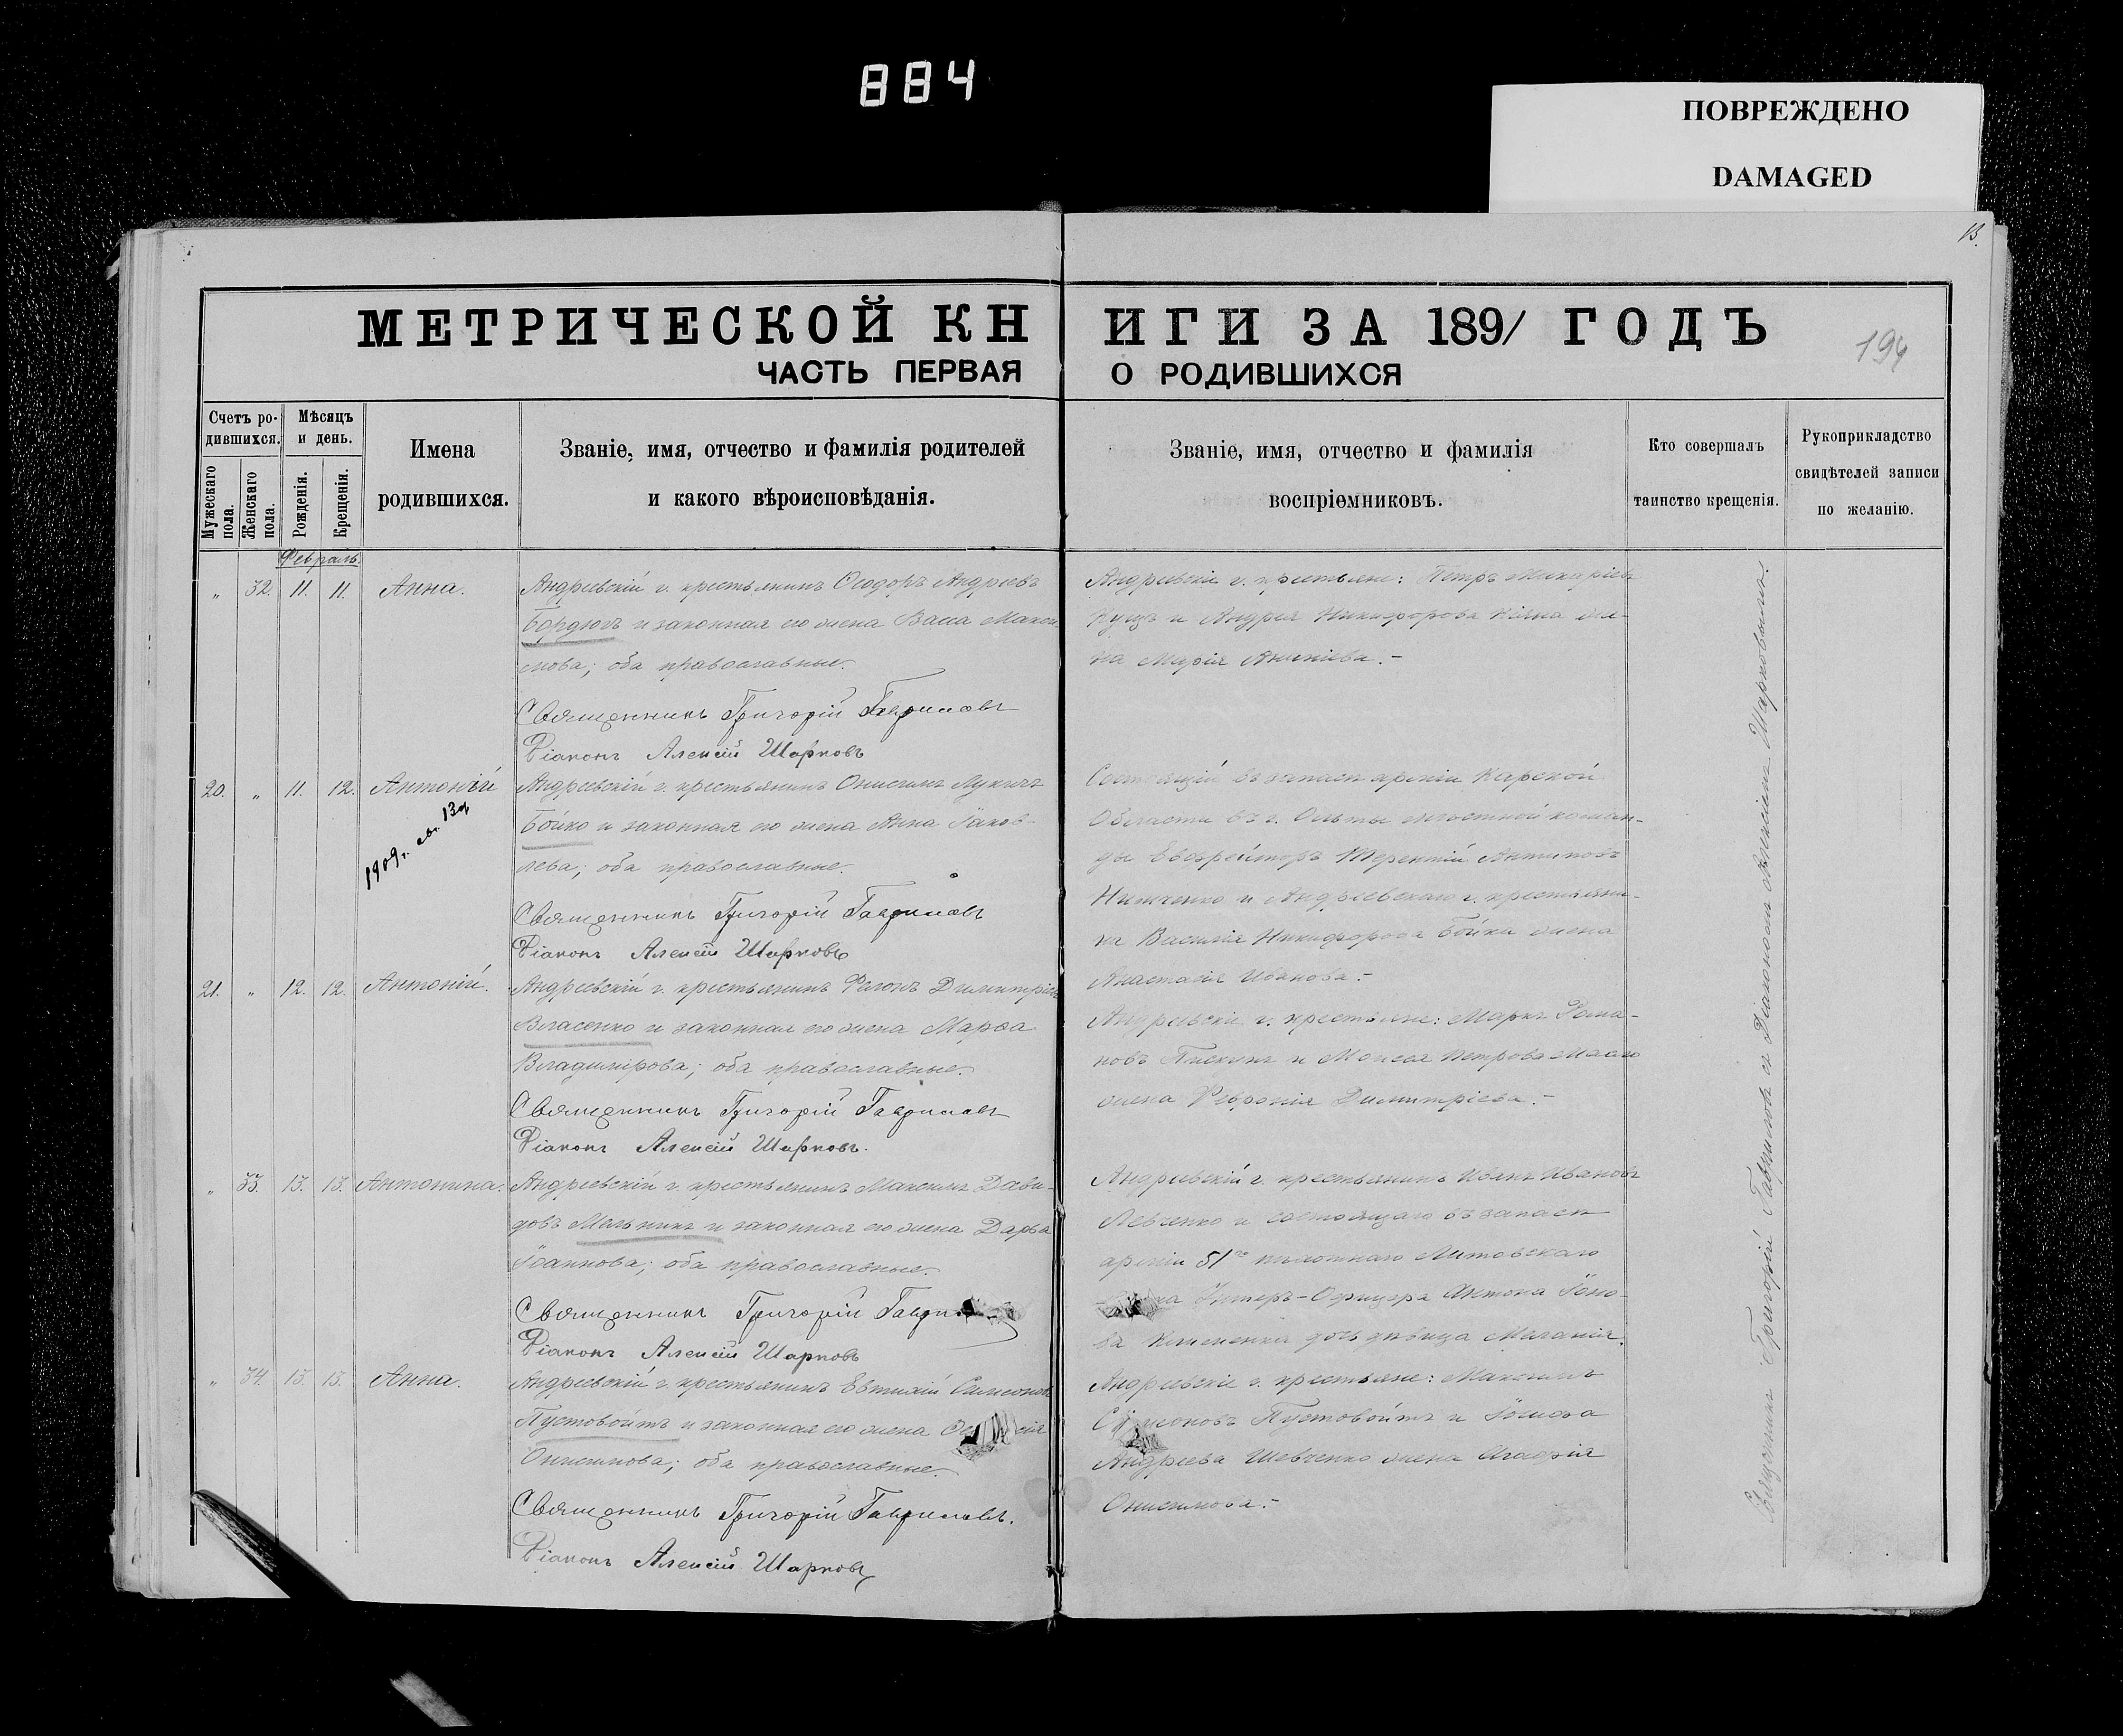 884
ПОВРЕЖДЕНО
DAMAGED
13.
МЕТРИЧЕСКОЙ КНИГИ ЗА 1891 ГОДЪ
194
ЧАСТЬ ПЕРВАЯ О РОДИВШИХСЯ
Счетъ ро-
дившихся.
Мужескаго пола.
Женскаго пола.
Мѣсяцъ
и день.
Рожденія.
Крещенія.
Имена
родившихся.
Званіе, имя, отчество и фамилія родителей
и какого вѣроисповѣданія.
Званіе, имя, отчество и фамилія
воспріемниковъ.
Кто совершалъ
таинство крещенія.
Рукоприкладство
свидѣтелей записи
по желанію.
Февраль.
„ 32. 11. 11. Анна.
Андреевскій г. крестьянинъ Ѳеодоръ Андреевъ
Бордюгъ и законная его жена Васса Макси-
мова; оба православные.
Священникъ Григорій Гавриловъ
Діаконъ Алексій Шарковъ
Андреевскіе г. крестьяне: Петръ
Куцъ и Андрея Никифорова же-
на Марія
20. „ 11. 12. Антоній
1909 г. 13
Андреевскій г. крестьянинъ Онисимъ Лукичъ
Бойко и законная его жена Анна Іаков-
лева; оба православные.
Священникъ Григорій Гавриловъ
Діаконъ Алексій Шарковъ
Состоящій въ запасѣ арміи Карской
Области въ г. Ольты мѣстной коман-
ды Ефрейторъ Терентій Антиповъ
и Андреевскаго г. крестьяни-
на Василія Никифорова Бойки жена
Анастасія Иванова.-
21. „ 12. 12. Антоній.
Андреевскій г. крестьянинъ Филонъ Димитріевъ
Власенко и законная его жена Марѳа
Владимірова; оба православные.
Священникъ Григорій Гавриловъ
Діаконъ Алексій Шарковъ.
Андреевскіе г. крестьяне: Маркъ Рома-
новъ и Моисея Петрова
жена Февронія Димитріева.-
„ 33. 13. 13. Антонина.
Андреевскій г. крестьянинъ Максимъ Дави-
довъ Мельникъ и законная его жена Дарья
Іоаннова; оба православные.
Священникъ Григорій
Діаконъ Алексій Шарковъ
Андреевскій г. крестьянинъ Иванъ Ивановъ
Левченко и состоящаго въ запасѣ
арміи 51го пѣхотнаго Литовскаго
Унтеръ-Офицера Антона
Клименка дочь дѣвица Меланія.
„ 34. 13. 13. Анна.
Андреевскій г. крестьянинъ Евтихій Симеоновъ
Пустовойтъ и законная его жена
Онисимова; оба православные.
Священникъ Григорій Гавриловъ.
Діаконъ Алексій Шарковъ
Андреевскіе г. крестьяне: Максимъ
Симеоновъ Пустовойтъ и Іосифа
Андреева Шевченко жена Агафія
Онисимова.-
Священникъ Григорій Гавриловъ съ Діакономъ Алексіемъ Шарковымъ.